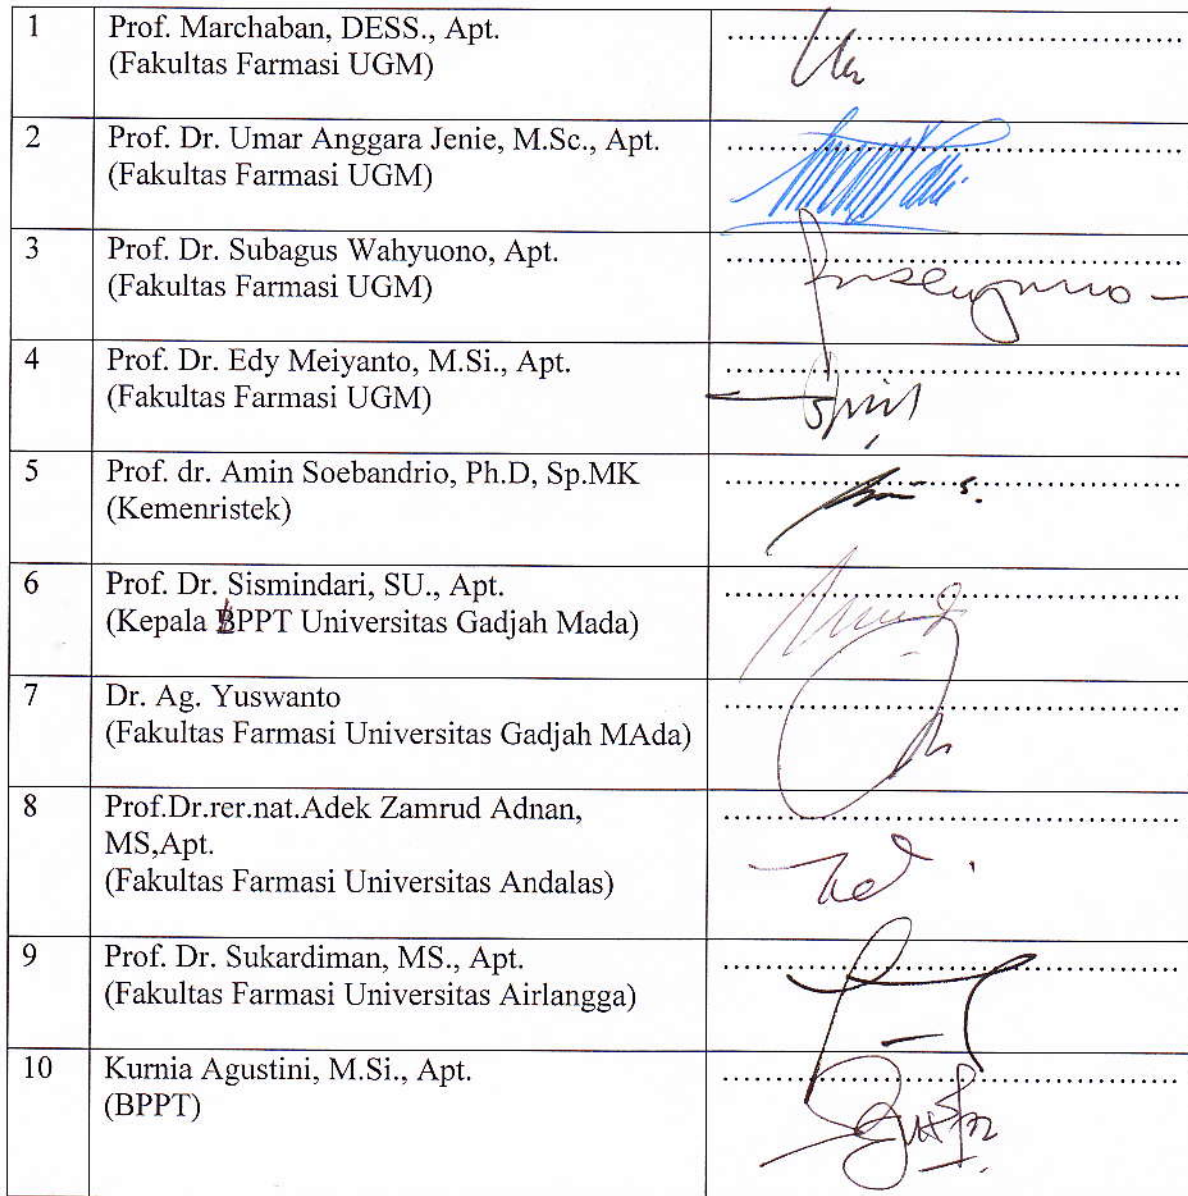 1 Prof. Marchaban, DESS., Apt.
(Fakultas Farmasi UGM)
2 Prof. Dr. Umar Anggara Jenie, M.Sc., Apt.
(Fakultas Farmasi UGM)
3 Prof. Dr. Subagus Wahyuono, Apt.
(Fakultas Farmasi UGM)
4 Prof. Dr. Edy Meiyanto, M.Si., Apt.
(Fakultas Farmasi UGM)
5 Prof. dr. Amin Soebandrio, Ph.D, Sp.MK
(Kemenristek)
6 Prof. Dr. Sismindari, SU., Apt.
(Kepala PPT Universitas Gadjah Mada)
7 Dr. Ag. Yuswanto
(Fakultas Farmasi Universitas Gadjah MAda)
8 Prof.Dr.rer.nat.Adek Zamrud Adnan,
MS,Apt.
(Fakultas Farmasi Universitas Andalas)
9 Prof. Dr. Sukardiman, MS., Apt.
(Fakultas Farmasi Universitas Airlangga)
10 Kurnia Agustini, M.Si., Apt.
(BPPT)